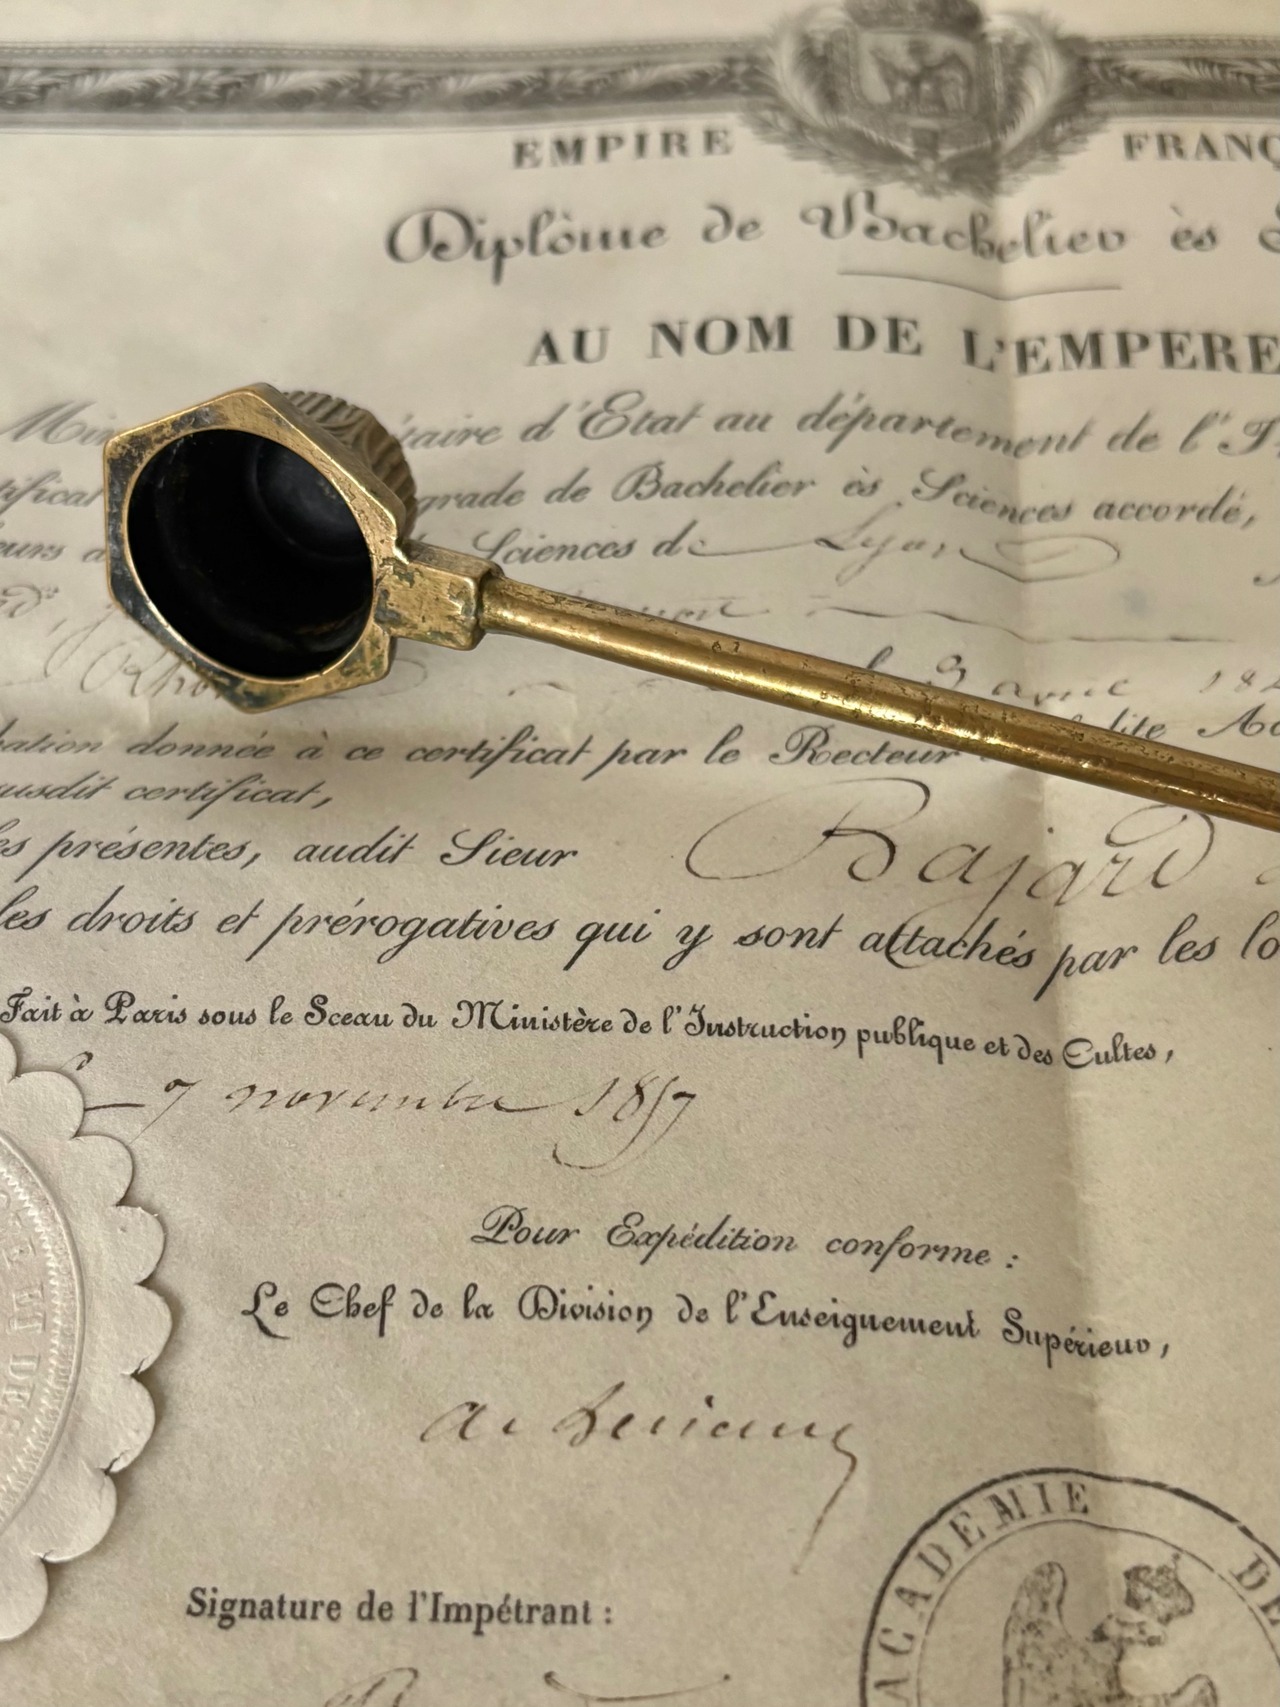 EMPIRE FRANÇ
Diplôme de Bachelier ès
AU NOM DE L'EMPERE
Min taire d'État au département de l'I
tificat grade de Bachelier ès Sciences accordé,
eurs d Sciences de Lyon
le 9 avril 18
bation donnée à ce certificat par le Recteur dite Ac
usdit certificat,
es présentes, audit Sieur Bajard
les droits et prérogatives qui y sont attachés par les lo
Fait à Paris sous le Sceau du Ministère de l'Instruction publique et des Cultes,
le 7 novembre 1857
Pour Expédition conforme :
Le Chef de la Division de l'Enseignement Supérieur,
Signature de l'Impétrant :
ACADEMIE DE